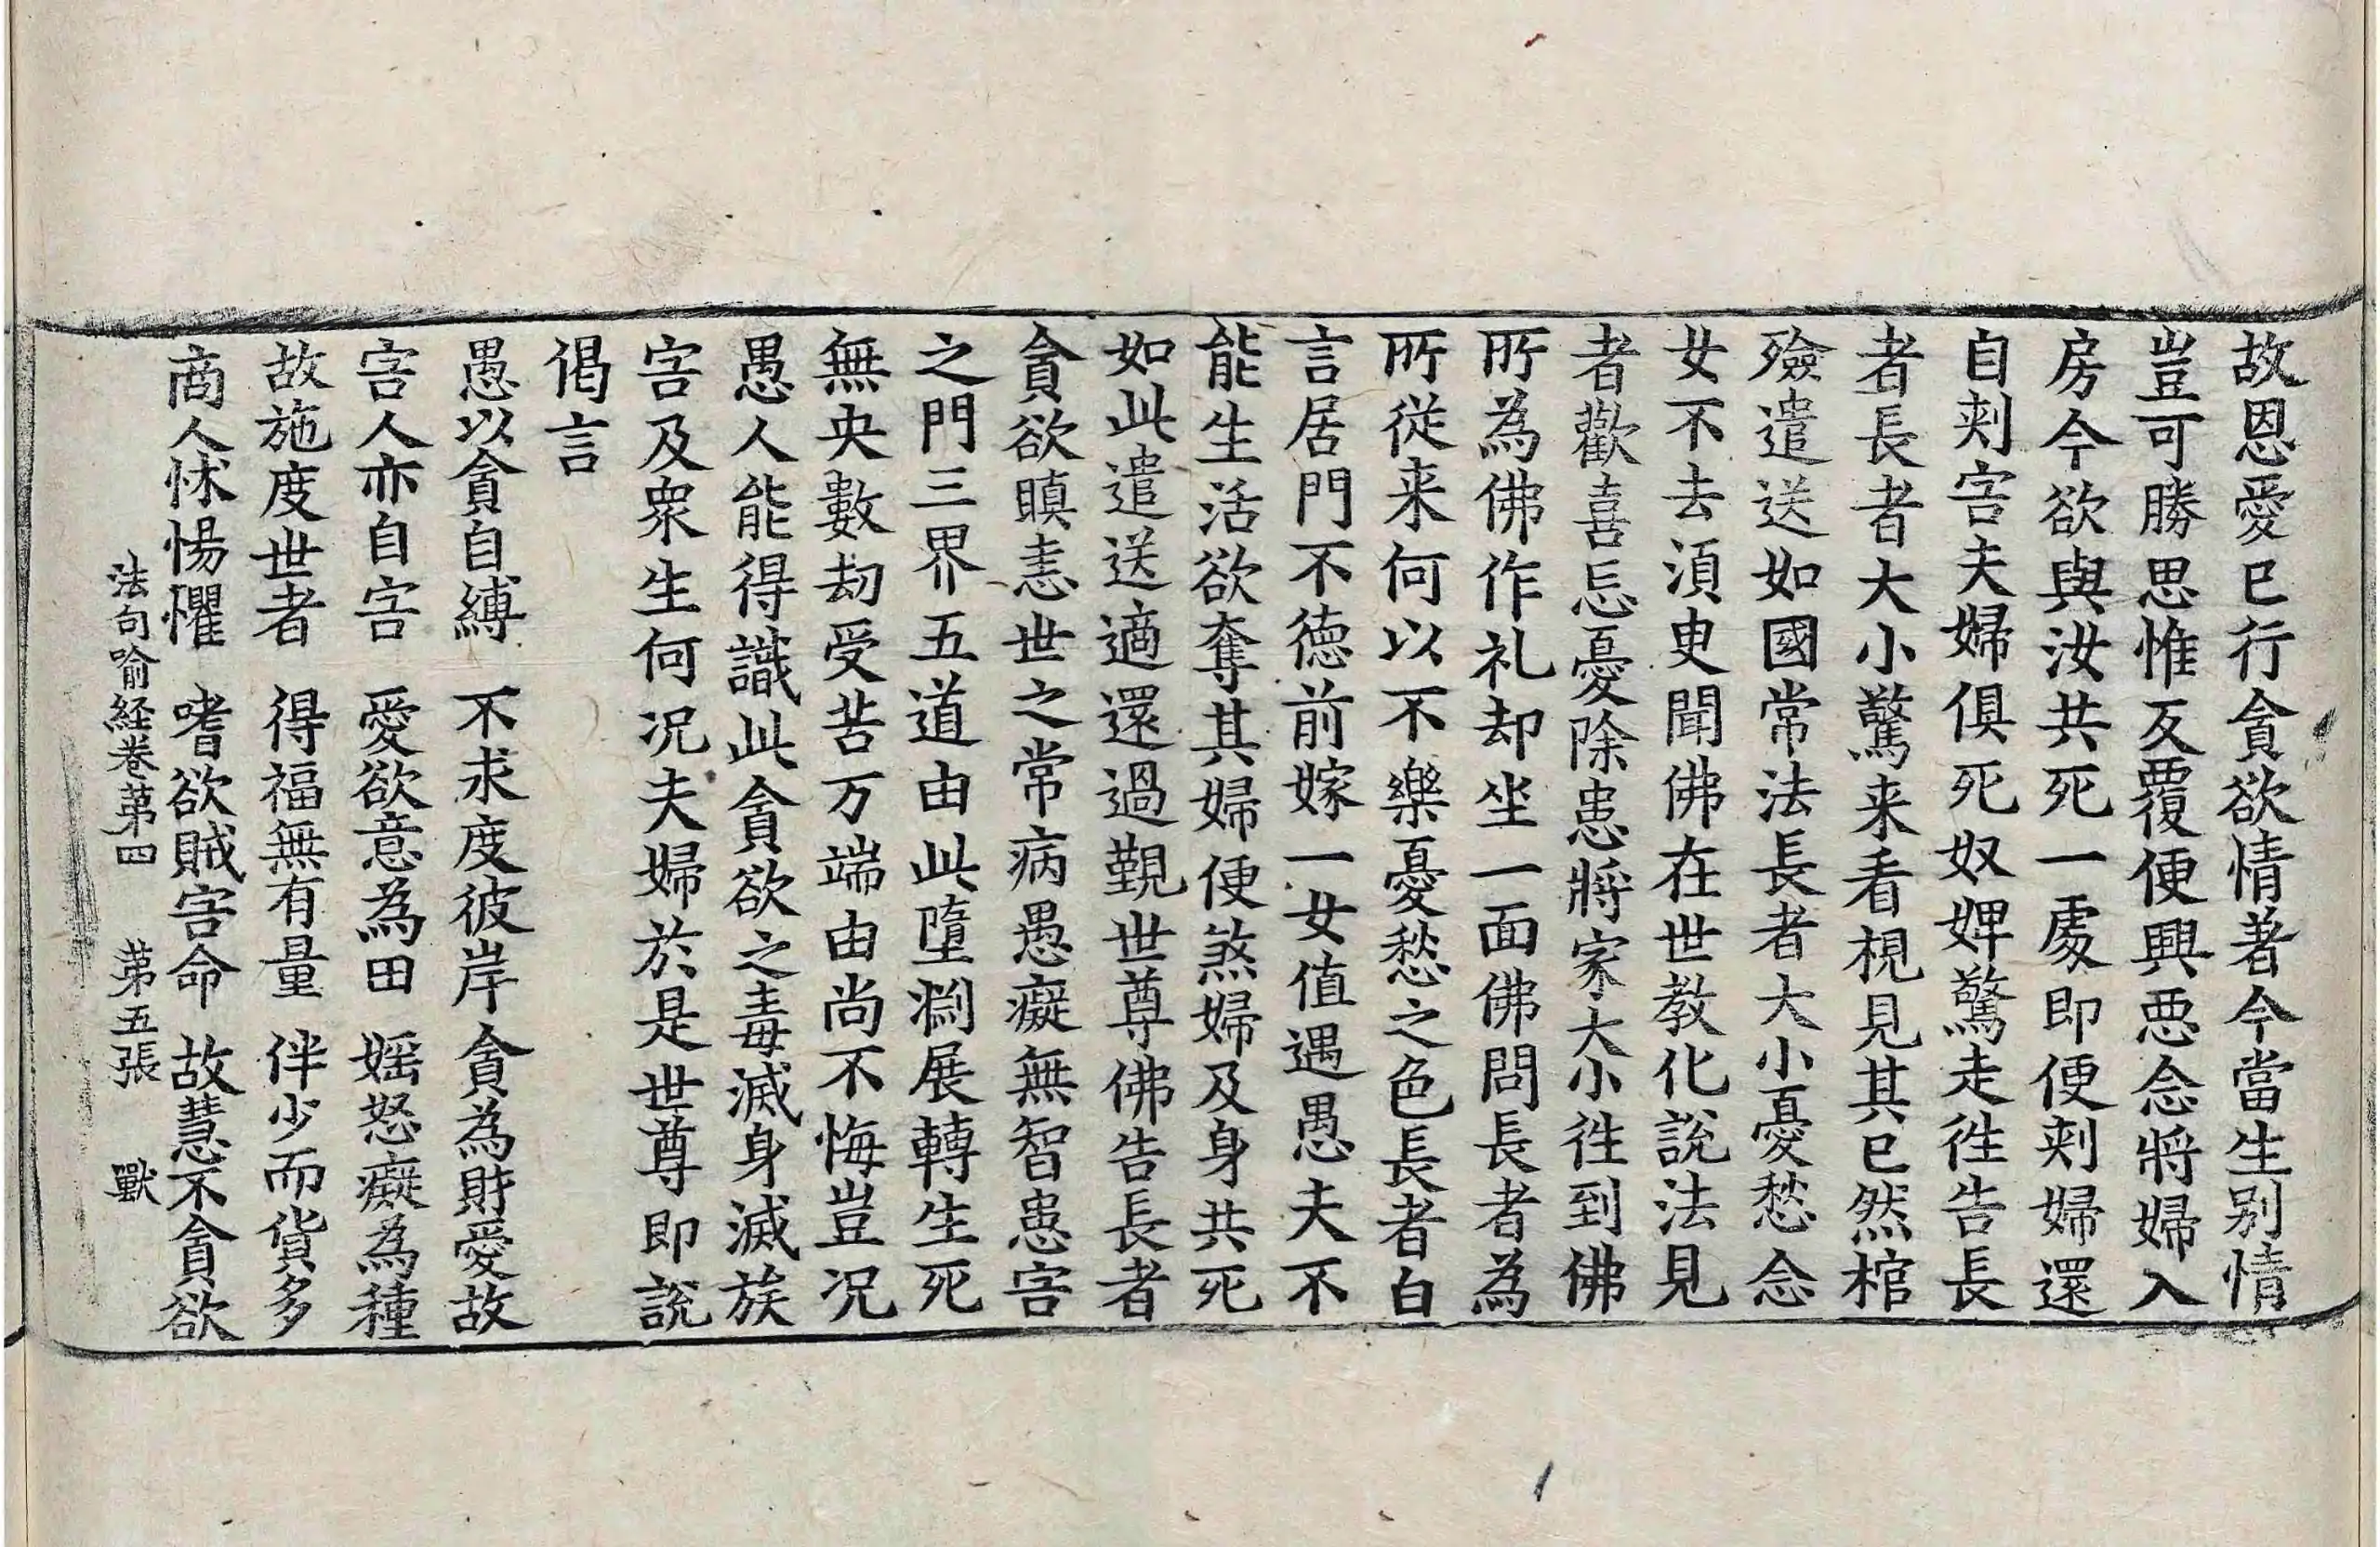 故恩愛已行貪欲情著今當生別情
豈可勝思惟反覆便興惡念將婦入
房今欲與汝共死一處即便刾婦還
自刾害夫婦俱死奴婢驚走徃告長
者長者大小驚来看視見其已然棺
殮遣送如國常法長者大小憂愁念
女不去湏臾聞佛在世教化說法見
者歡喜忘憂除患將家大小徃到佛
所為佛作礼却坐一面佛問長者為
所從来何以不樂憂愁之色長者白
言居門不德前嫁一女值遇愚夫不
能生活欲奪其婦便煞婦及身共死
如此遣送適還過覲世尊佛告長者
貪欲瞋恚世之常病愚癡無智患害
之門三界五道由此墮渕展轉生死
無央數劫受苦万端由尚不悔豈况
愚人能得識此貪欲之毒滅身滅族
害及衆生何况夫婦於是世尊即說
偈言
愚以貪自縛　不求度彼岸　貪為財愛故
害人亦自害　愛欲意為田　婬怒癡為種
故施度世者　得福無有量　伴少而貨多
商人怵惕懼　嗜欲賊害命　故慧不貪欲
法句喻経卷苐四　苐五張　獸